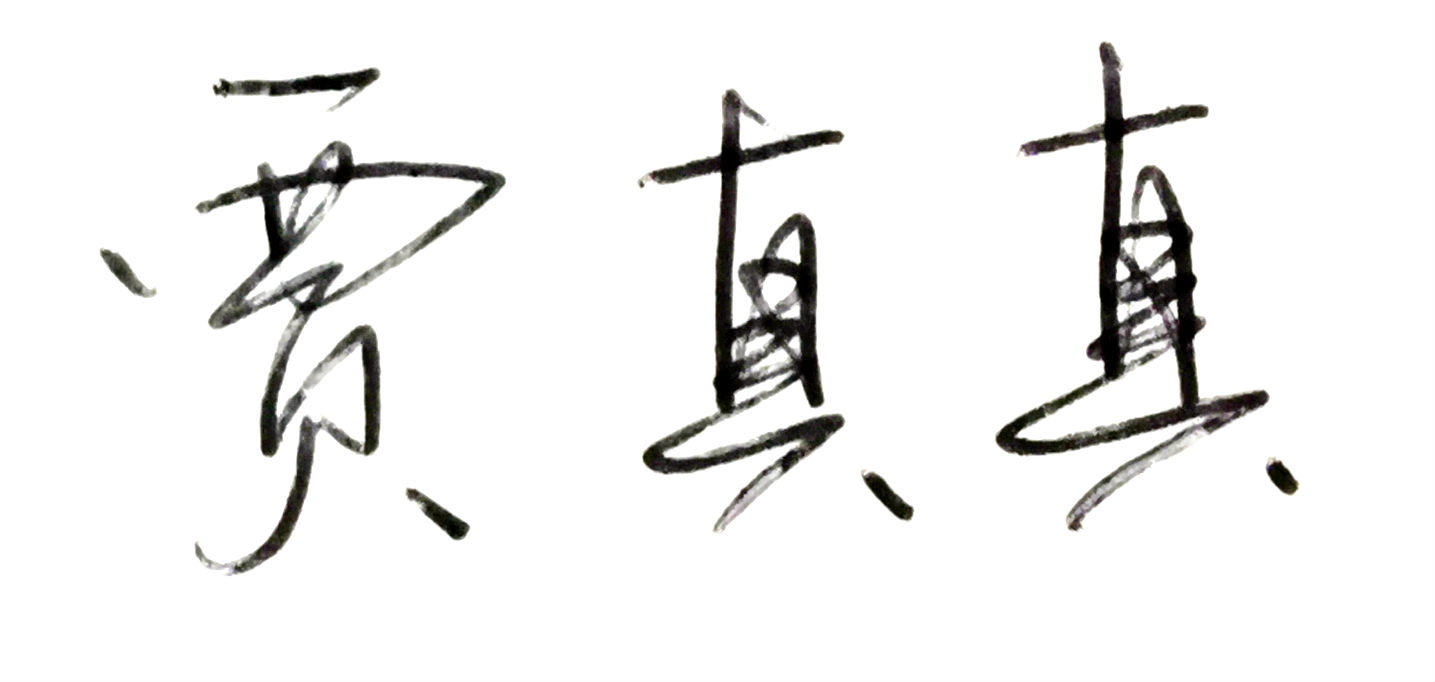 贾真真